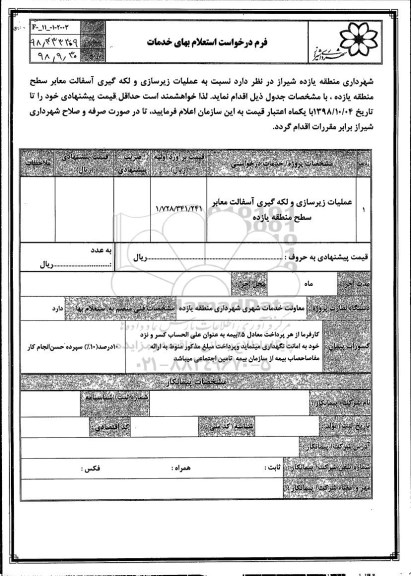 F-۰_۱۱_۰۱۰۲۰۰۲
۹۸/۴۳۴۲۰۹
۹۸/۹/۳۰
فرم درخواست استعلام بهای خدمات
شهرداری منطقه یازده شیراز در نظر دارد نسبت به عملیات زیرسازی و لکه گیری آسفالت معابر سطح
منطقه یازده ، با مشخصات جدول ذیل اقدام نماید. لذا خواهشمند است حداقل قیمت پیشنهادی خود را تا
تاریخ ۱۳۹۸/۱۰/۰۴با یکماه اعتبار قیمت به این سازمان اعلام فرمایید، تا در صورت صرفه و صلاح شهرداری
شیراز برابر مقررات اقدام گردد.
مشخصات پروژه/ خدمات درخواستی قیمت برآورد اولیه ضریب پیشنهادی قیمت پیشنهادی ملاحظات
۱ عملیات زیرسازی و لکه گیری آسفالت معابر سطح منطقه یازده ۱/۷۲۸/۳۴۱/۲۴۱
قیمت پیشنهادی به حروف : ......ریال به عدد :......ریال
مدت اجرا: ماه محل اجرا:
دستگاه نظارت پروژه: معاونت خدمات شهری شهرداری منطقه یازده مشخصات فنی منضم به استعلام بها: دارد
کسورات پیمان: کارفرما از هر پرداخت معادل ۵٪بیمه به عنوان علی الحساب کسر و نزد خود به امانت نگهداری مینماید وپرداخت مبلغ مذکور منوط به ارائه مفاصاحساب بیمه از سازمان بیمه تامین اجتماعی میباشد ۱۰درصد(۱۰٪) سپرده حسن‌انجام کار
مشخصات پیمانکار
نام شرکت/ پیمانکار: شماره ثبت/ شناسنامه:
تاریخ ثبت/ تولد: شناسه/ کد ملی: کد اقتصادی:
آدرس شرکت/ پیمانکار:
شماره تلفن شرکت/ پیمانکار: ثابت : همراه : فکس :
مهر و امضاء شرکت/ پیمانکار:
۰۲۱-۸۸۳۴۹۶۷۰-۵